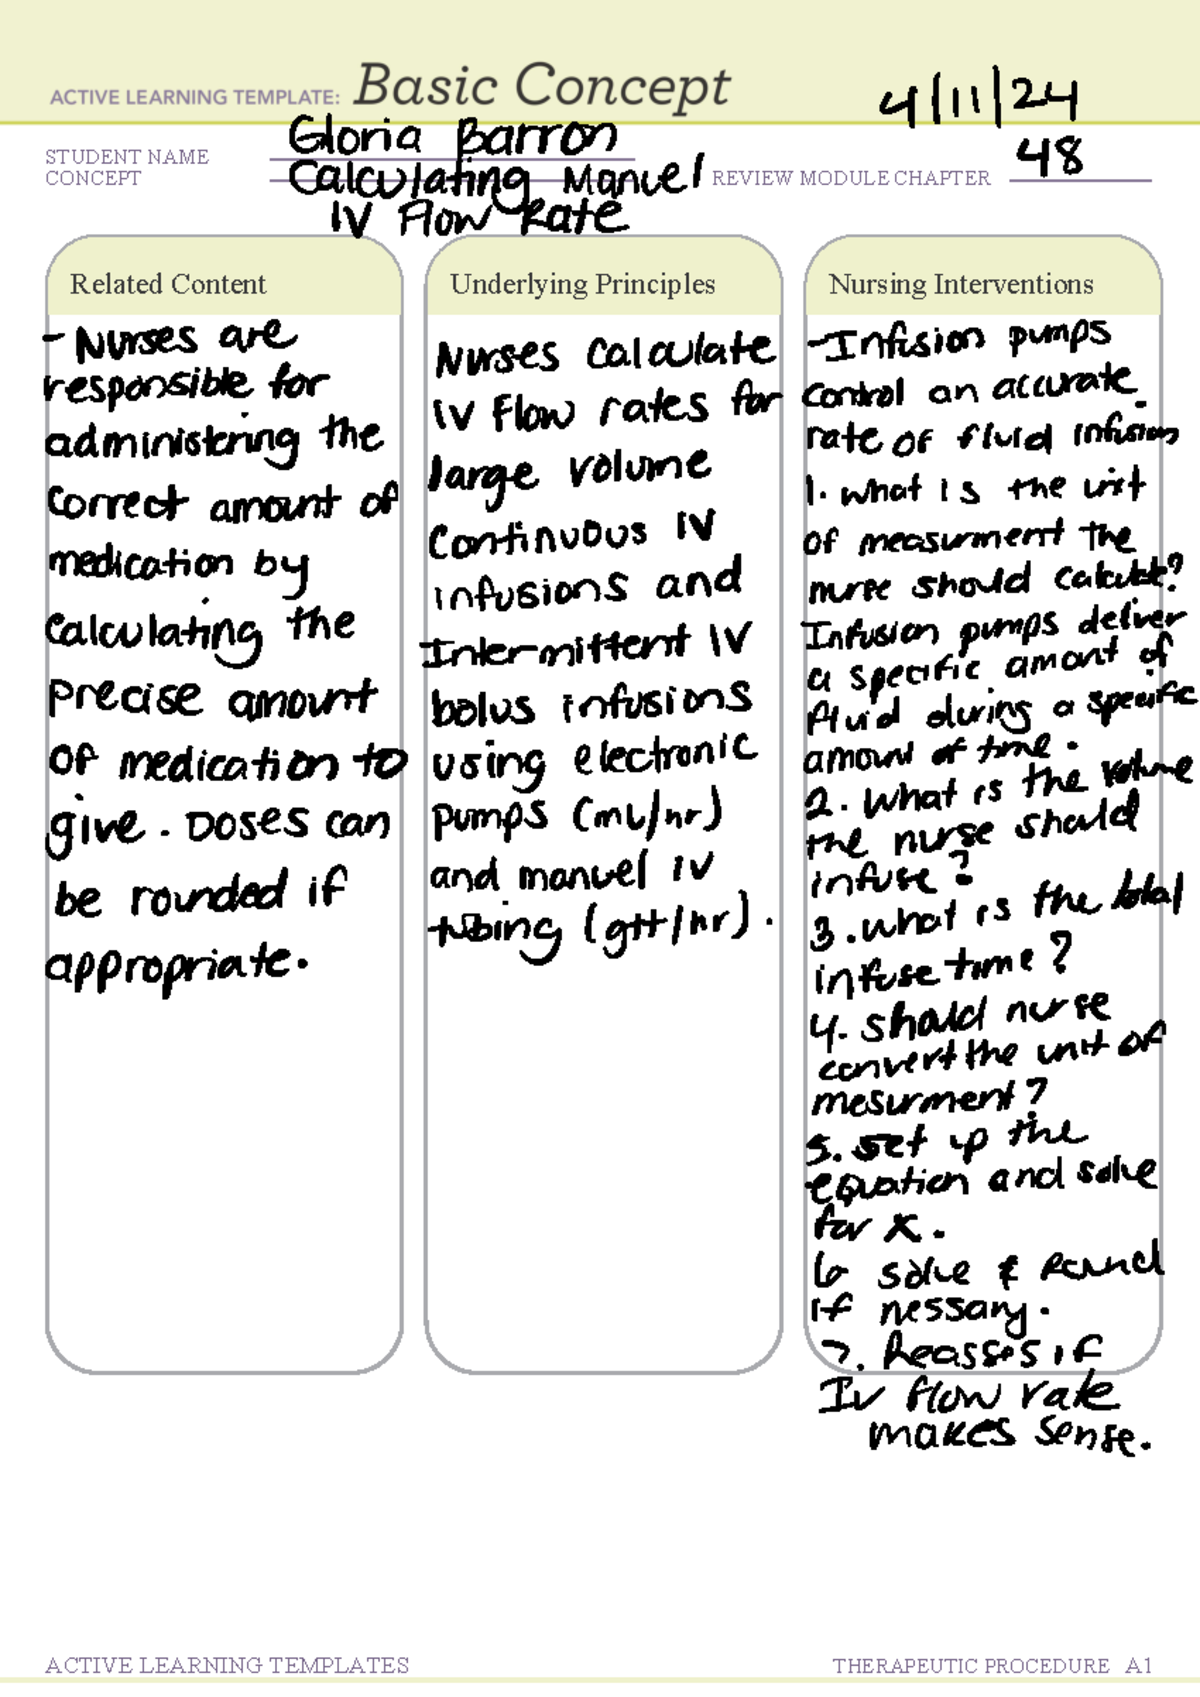 ACTIVE LEARNING TEMPLATE: Basic Concept
4/11/24
STUDENT NAME Gloria Barron
CONCEPT Calculating Manuel REVIEW MODULE CHAPTER 48
IV Flow Rate
Related Content
- Nurses are
responsible for
administering the
correct amount of
medication by
calculating the
precise amount
of medication to
give. Doses can
be rounded if
appropriate.
Underlying Principles
Nurses calculate
IV flow rates for
large volume
continuous IV
infusions and
Intermittent IV
bolus infusions
using electronic
pumps (mL/hr)
and manuel IV
tubing (gtt/hr).
Nursing Interventions
-Infusion pumps
control an accurate
rate of fluid infusion
1. what is the unit
of measurment the
nurse should calculate?
Infusion pumps deliver
a specific amont of
fluid during a specific
amount of time.
2. What is the volume
the nurse should
infuse?
3. what is the total
infuse time?
4. should nurse
convert the unit of
mesurment?
5. set up the
equation and solve
for x.
6 solve & Round
if nessary.
7. Reasses if
IV flow rate
makes sense.
ACTIVE LEARNING TEMPLATES
THERAPEUTIC PROCEDURE A1